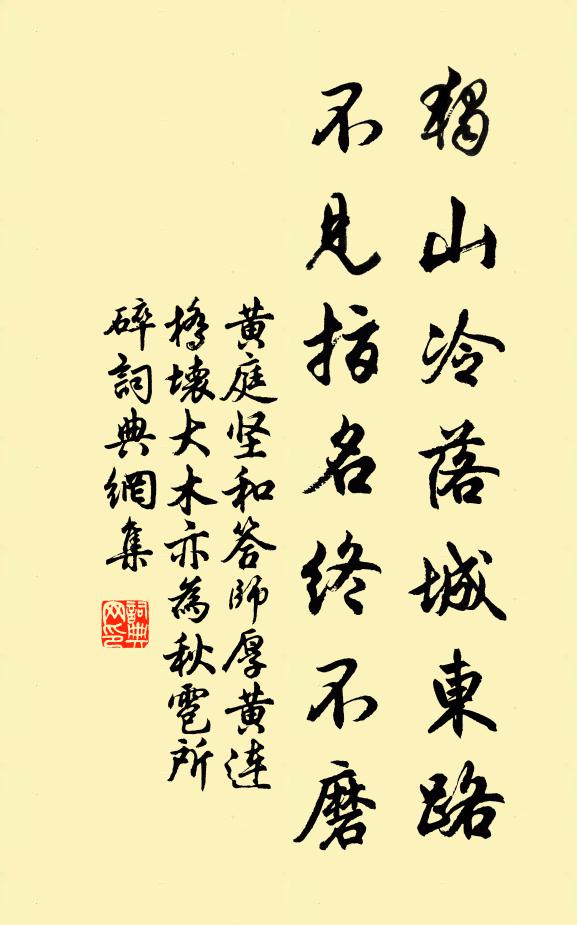 獨山冷落城東路
不見指名終不磨
黄庭坚和答师厚黄连
橋壞大木亦為秋雹所
碎詞典網集
詞典
网印